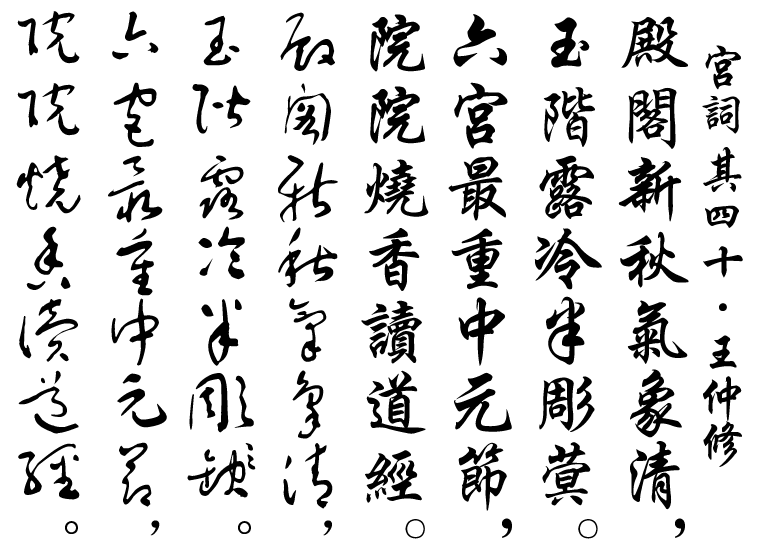 宮詞 其四十·王仲修
殿閣新秋氣象清，
玉階露冷半彫蓂。
六宮最重中元節，
院院燒香讀道經。
殿閣新秋氣象清，
玉階露冷半彫。
六宮最重中元節，
院院燒香讀道經。